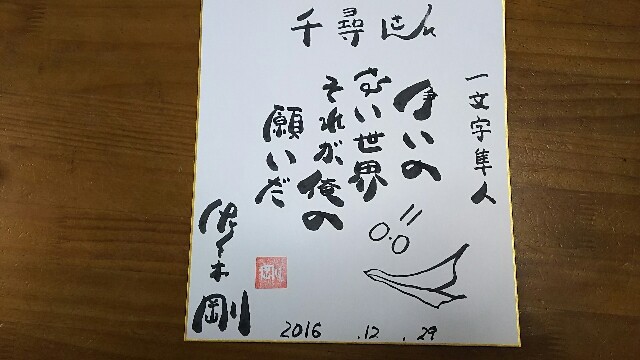 千尋さん
一文字隼人
争いの
ない世界
それが俺の
願いだ
佐々木
剛
剛
2016.12.29